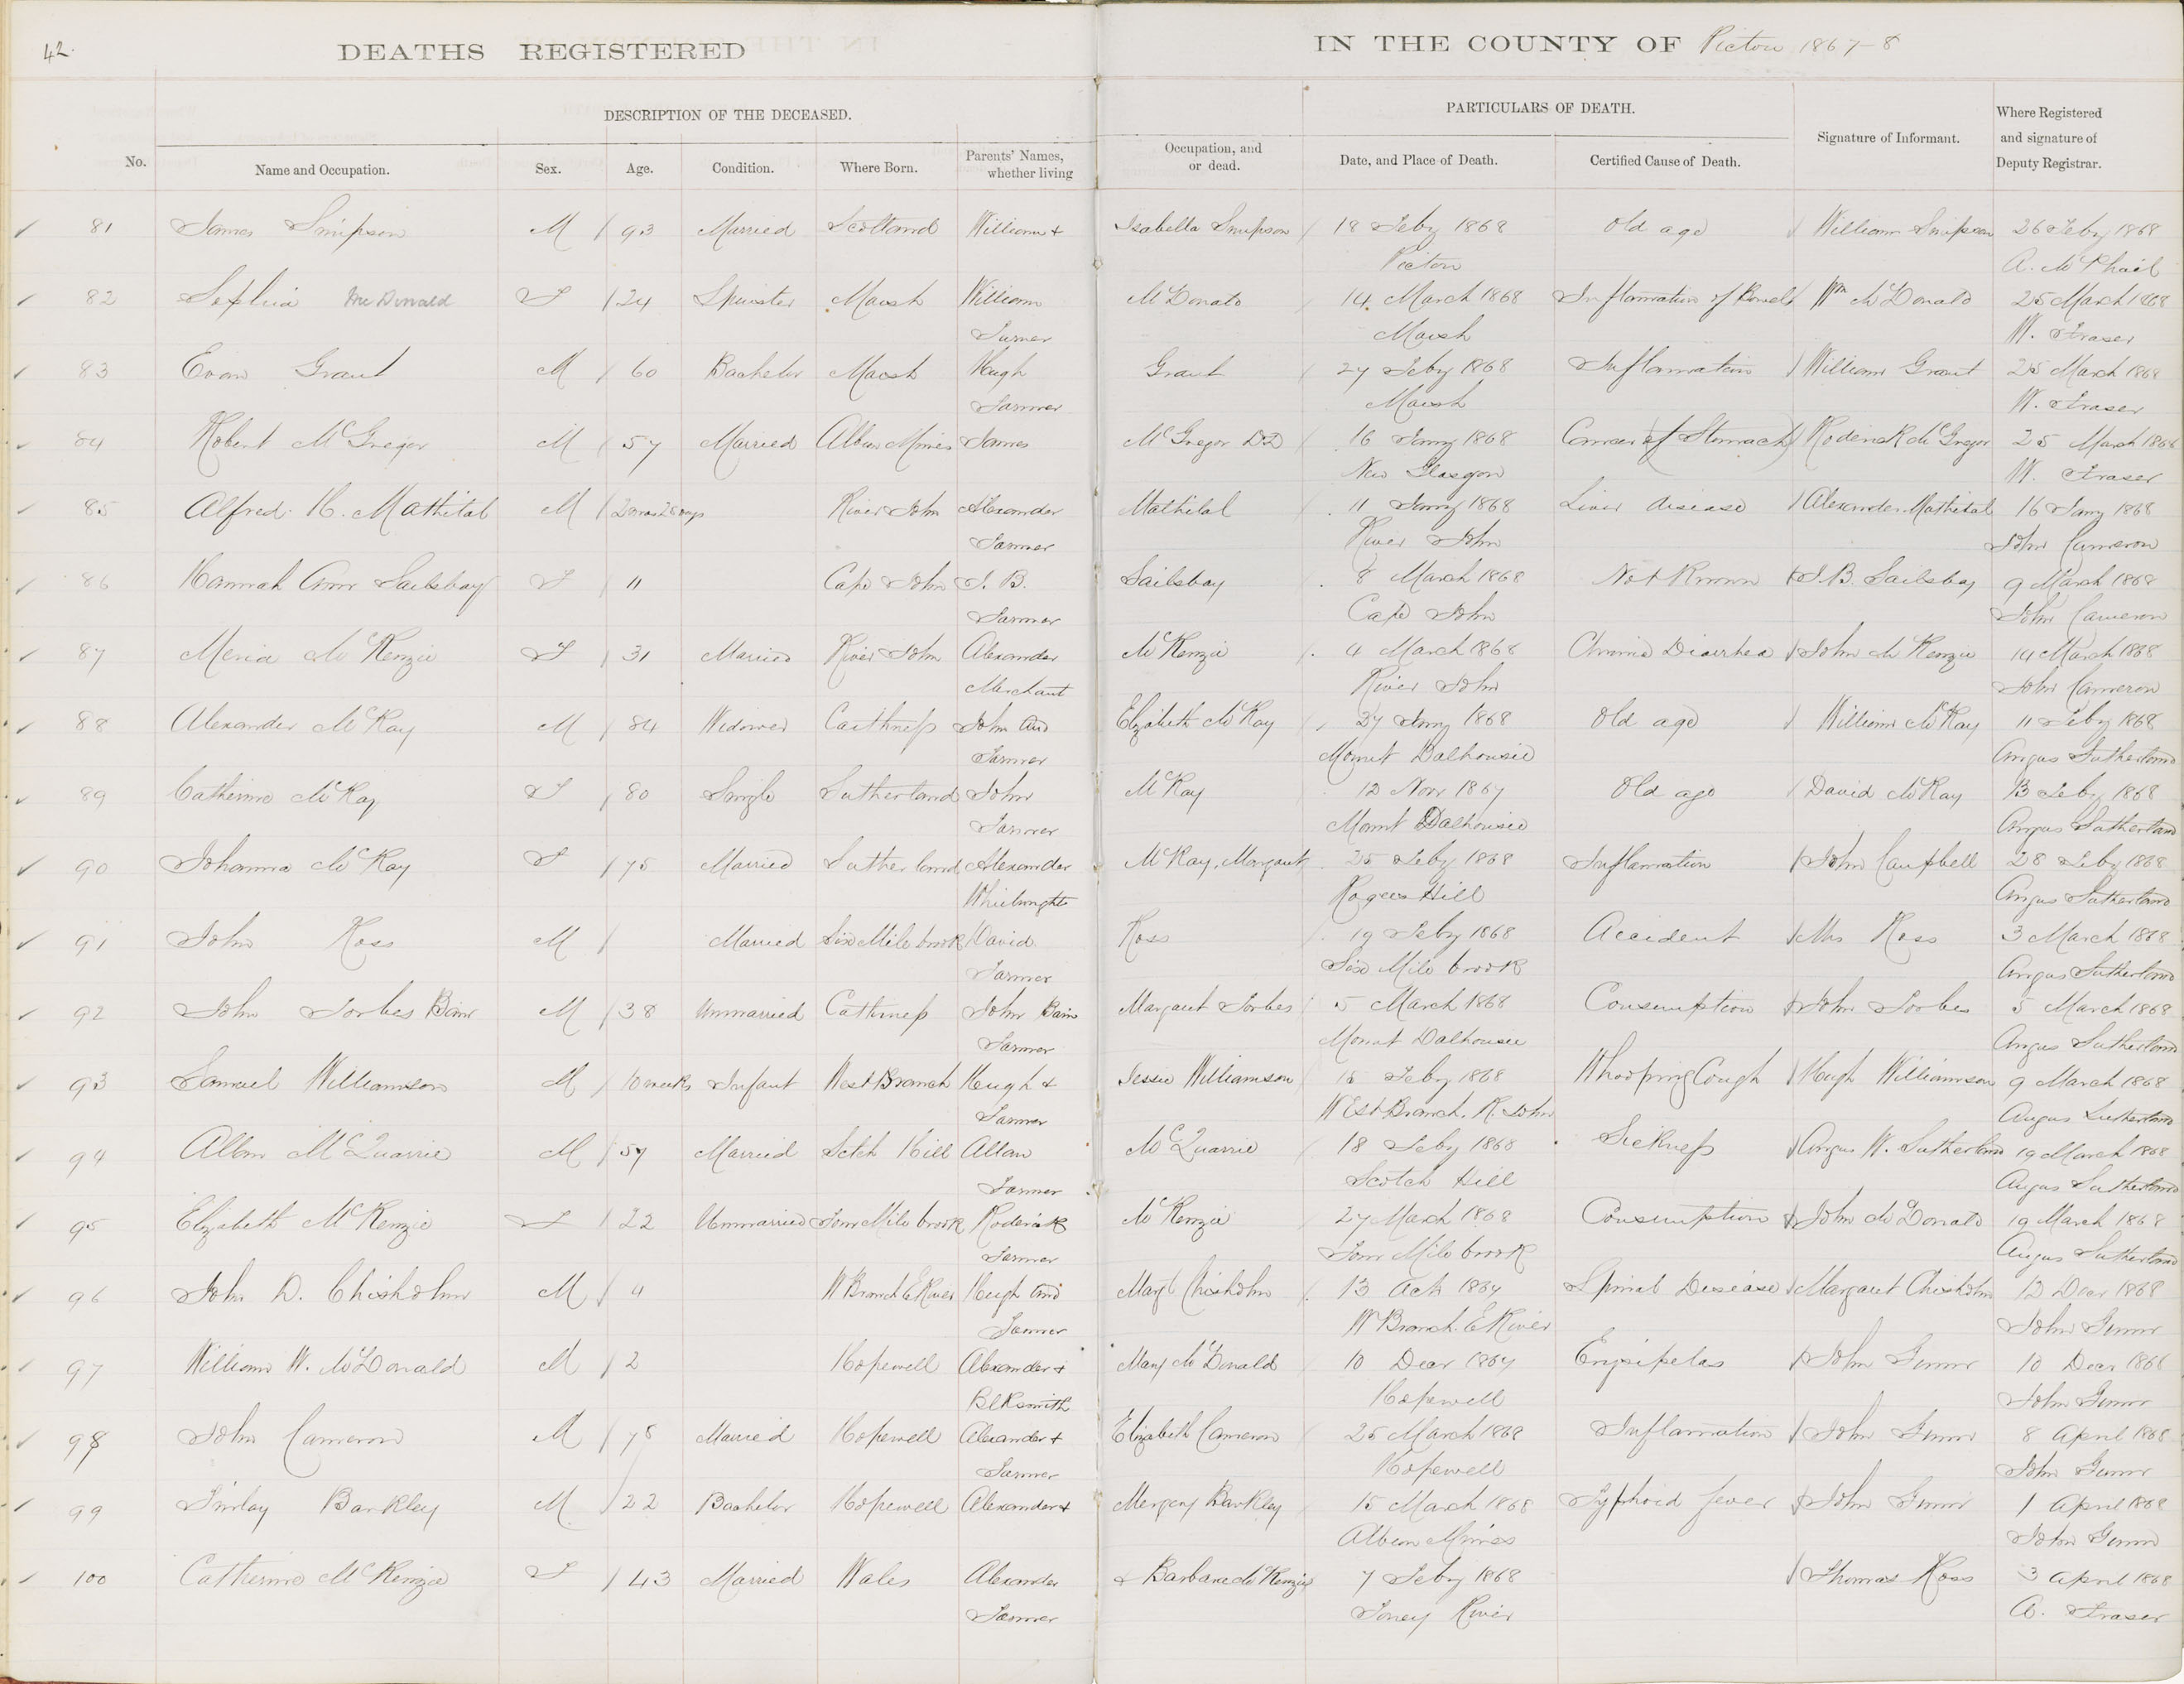 42.
DEATHS REGISTERED IN THE COUNTY OF Pictou 1867-8
DESCRIPTION OF THE DECEASED. PARTICULARS OF DEATH.
No. Name and Occupation. Sex. Age. Condition. Where Born. Parents' Names, whether living Occupation, and or dead. Date, and Place of Death. Certified Cause of Death. Signature of Informant. Where Registered and signature of Deputy Registrar.
81 James Simpson M 93 Married Scotland William + Isabella Simpson 18 Feby 1868 Old age William Simpson 26 Feby 1868
Pictou A. McPhail
82 Sophia McDonald F 24 Spinster Marsh William McDonald 14 March 1868 Inflamation of Bowels Wm McDonald 25 March 1868
Farmer Marsh W. Fraser
83 Evan Grant M 60 Bachelor Marsh Hugh Grant 27 Feby 1868 Inflamation William Grant 25 March 1868
Farmer Marsh W. Fraser
84 Robert McGregor M 57 Married Albion Mines James McGregor DD 16 Jany 1868 Cancer (of Stomach) Roderick McGregor 25 March 1868
New Glasgow W. Fraser
85 Alfred H. Mathital M 2 mos 28 days River John Alexander Mathital 11 Jany 1868 Liver disease Alexander Mathital 16 Jany 1868
Farmer River John John Cameron
86 Hannah Ann Sailsbay F 11 Cape John J. B. Sailsbay 8 March 1868 Not Known J. B. Sailsbay 9 March 1868
Farmer Cape John John Cameron
87 Meria McKenzie F 31 Married River John Alexander McKenzie 4 March 1868 Chronic Diarrhea John McKenzie 14 March 1868
Merchant River John John Cameron
88 Alexander McKay M 84 Widower Caithness John and Elizabeth McKay 27 Jany 1868 Old age William McKay 11 Feby 1868
Farmer Mount Dalhousie Angus Sutherland
89 Catherine McKay F 80 Single Sutherland John McKay 12 Novr 1867 Old age David McKay 13 Feby 1868
Farmer Mount Dalhousie Angus Sutherland
90 Johanna McKay F 75 Married Sutherland Alexander McKay, Margaret 25 Feby 1868 Inflamation John Campbell 28 Feby 1868
Rogers Hill Angus Sutherland
91 John Ross M Married Six Mile brook David Ross 19 Feby 1868 Accident Mrs Ross 3 March 1868
Farmer Six Mile brook Angus Sutherland
92 John Forbes Bain M 38 Unmarried Cathness John Bain Margaret Forbes 5 March 1868 Consumption John Forbes 5 March 1868
Farmer Mount Dalhousie Angus Sutherland
93 Samuel Williamson M 10 weeks Infant West Branch Hugh + Jessie Williamson 15 Feby 1868 Whooping Cough Hugh Williamson 9 March 1868
Farmer West Branch. R. John Angus Sutherland
94 Allan McQuarrie M 57 Married Sctch Hill Allan McQuarrie 18 Feby 1868 Sickness Angus W. Sutherland 19 March 1868
Farmer Scotch Hill Angus Sutherland
95 Elizabeth McKenzie F 22 Unmarried Four Mile brook Roderick McKenzie 27 March 1868 Consumption John McDonald 19 March 1868
Farmer Four Mile brook Angus Sutherland
96 John D. Chisholm M 4 W Branch E River Hugh and Margt Chisholm 13 Octr 1867 Spinal Disease Margaret Chisholm 12 Decr 1868
Farmer W Branch. E River John Gunn
97 William W. McDonald M 2 Hopewell Alexander + Mary McDonald 10 Decr 1867 Erysipelas John Gunn 10 Decr 1868
Blksmith Hopewell John Gunn
98 John Cameron M 78 Married Hopewell Alexander + Elizabeth Cameron 25 March 1868 Inflamation John Gunn 8 April 1868
Farmer Hopewell John Gunn
99 Finlay Barkley M 22 Bachelor Hopewell Alexander + Barkley 15 March 1868 Typhoid fever John Gunn 1 April 1868
Albion Mines John Gunn
100 Catherine McKenzie F 43 Married Wales Alexander + Barbara McKenzie 7 Feby 1868 Thomas Ross 3 April 1868
Farmer Toney River A. Fraser